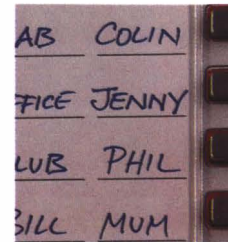 AB COLIN
FFICE JENNY
LUB PHIL
BILL MUM